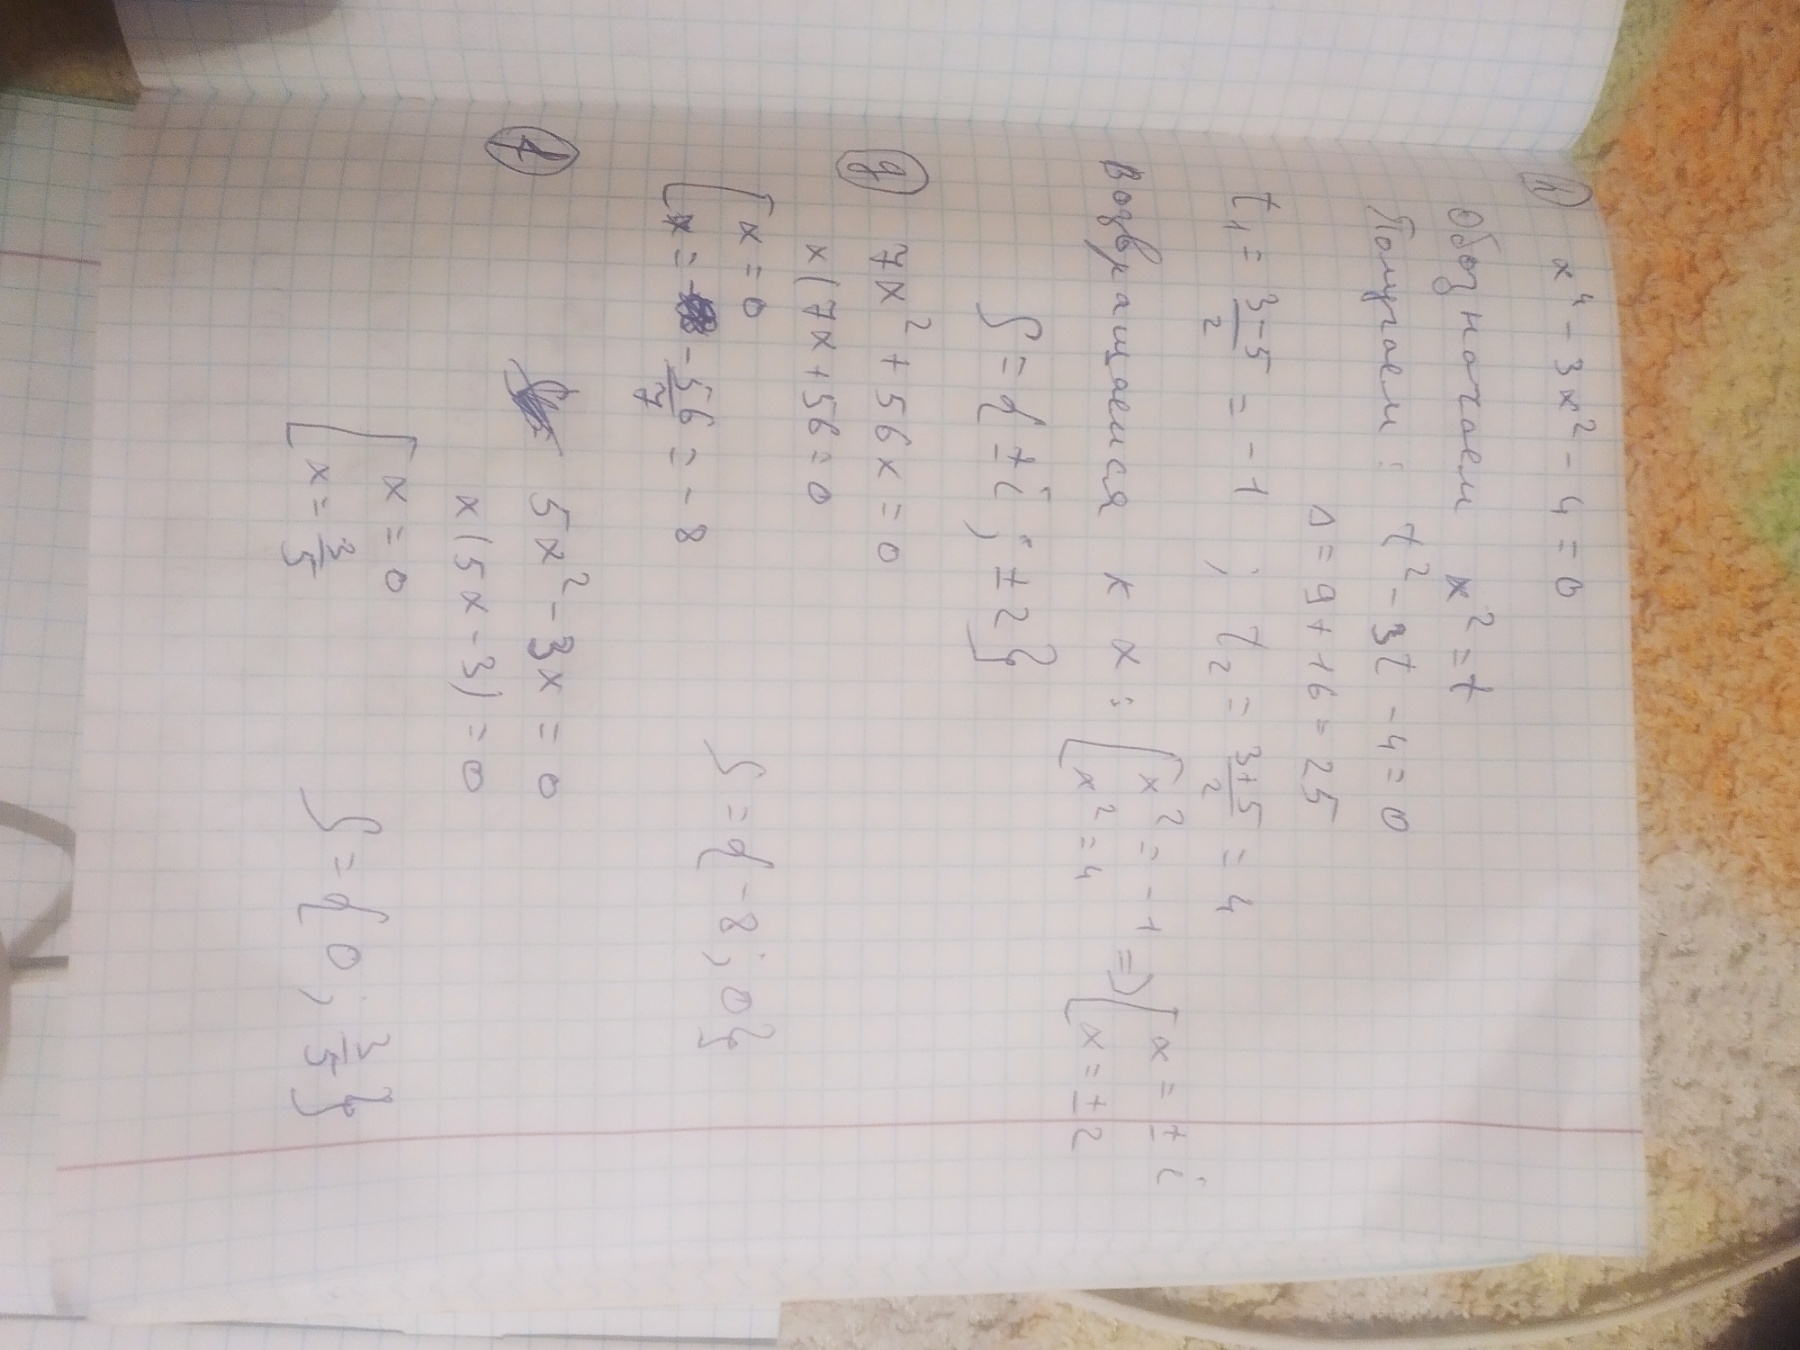 h) x⁴ - 3x² - 4 = 0
Обозначаем x² = t
Получаем : t² - 3t - 4 = 0
Δ = 9 + 16 = 25
t₁ = (3-5)/2 = -1 ; t₂ = (3+5)/2 = 4
Возвращаемся к x : [ x² = -1 ; x² = 4 => [ x = ± i ; x = ± 2
S = { ± i ; ± 2 }
g) 7x² + 56x = 0
x(7x + 56 = 0
[ x = 0
[ x = -56/7 = -8
S = { -8 ; 0 }
f) 5x² - 3x = 0
x(5x - 3) = 0
[ x = 0
[ x = 3/5
S = { 0 ; 3/5 }